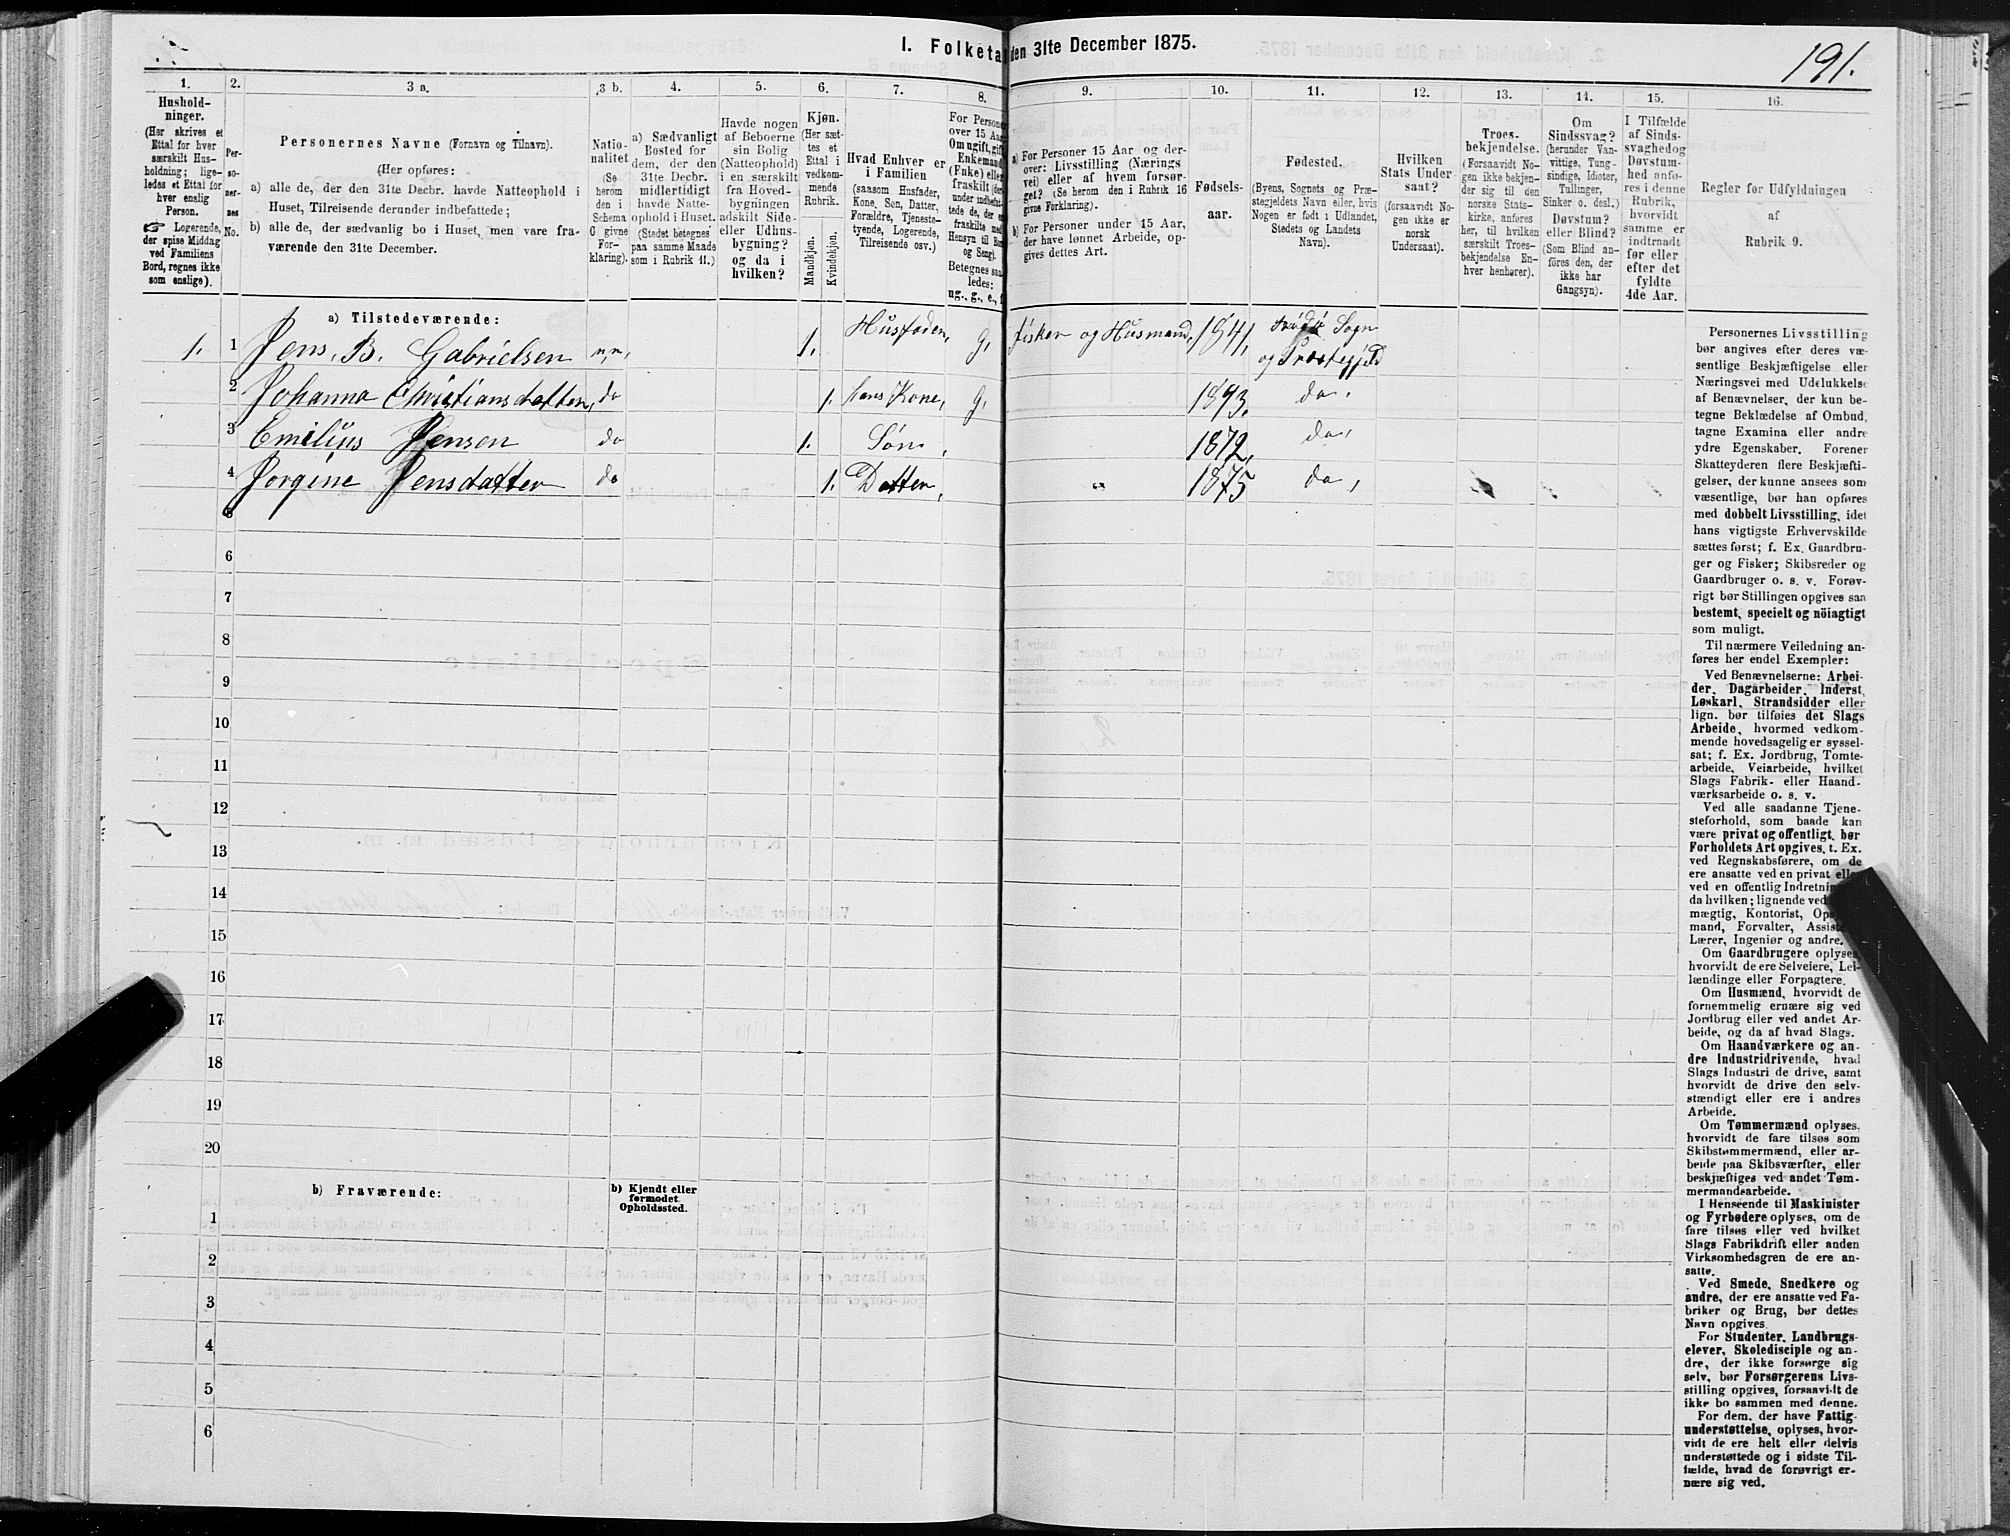 I. Folketæ
den 31te December 1875.
191.
1.
2.
3 a.
3 b.
4.
5.
6.
7.
8.
9.
10.
11.
12.
13.
14.
15.
16.
Hushold-
ninger.
(Her skrives et
Ettal for hver
særskilt Hus-
holdning; lige-
ledes et Ettal for
hver enslig
Person.
☞ Logerende,
der spise Middag
ved Familiens
Bord, regnes ikke
som enslige).
Per-
so-
ner-
nes
No.
Personernes Navne (Fornavn og Tilnavn).
(Her opføres:
a) alle de, der den 31te Decbr. havde Natteophold i
Huset, Tilreisende derunder indbefattede;
b) alle de, der sædvanlig bo i Huset, men vare fra-
værende den 31te December.
Natio-
nalitet
(Se
herom
den i
Schema
C givne
For-
klaring).
a) Sædvanligt
Bosted for
dem, der den
31te Decbr.
midlertidigt
havde Natte-
ophold i Huset.
(Stedet betegnes
paa samme Maade
som i Rubrik 11.)
Havde nogen
af Beboerne
sin Bolig
(Natteophold)
i en særskilt
fra Hoved-
bygningen
adskilt Side-
eller Udhus-
bygning?
og da i
hvilken?
Kjøn.
(Her sæt-
tes et
Ettal i
vedkom-
mende
Rubrik.
Mandkjøn.
Kvindekjøn.
Hvad Enhver er
i Familien
(saasom Husfader,
Kone, Søn, Datter,
Forældre, Tjeneste-
tyende, Logerende,
Tilreisende osv.)
For Persone
over 15 Aar
Om ugift, gift
Enkemand
(Enke) eller
fraskilt (der-
under indbefat-
tede de, der er
fraskilte med
Hensyn til Bo
og Seng).
Betegnes saa
ledes:
ug., g., e., f
a) For Personer 15 Aar og der-
over: Livsstilling (Nærings
vei) eller af hvem forsør-
get? (Se herom den i Rubrik 16
givne Forklaring).
b) For Personer under 15 Aar,
der have lønnet Arbeide, op-
gives dettes Art.
Fødsels-
aar.
Fødested.
(Byens, Sognets og Præ-
stegjeldets Navn eller, hvis
Nogen er født i Udlandet,
Stedets og Landets
Navn).
Hvilken
Stats Under
saat?
(forsaavidt No-
gen ikke er
norsk
Undersaat).
Troes-
bekjendelse.
(Forsaavidt No-
gen ikke bekjen-
der sig til den
norske Stats-
kirke, anføres
her, til hvilken
særskilt Troes-
bekjendelse En-
hver henhører).
Om
Sindssvag?
(herunder Van-
vittige, Tung-
sindige, Idioter,
Tullinger,
Sinker o. desl.)
Døvstum?
eller Blind?
(Som Blind an-
føres den, der
ikke har
Gangsyn).
I Tilfælde
af Sinds-
svaghed og
Døvstum-
hed anfø-
res i denne
Rubrik,
hvorvidt
samme er
indtraadt
før eller
efter det
fyldte
4de Aar.
Regler for Udfyldningen
af
Rubrik 9.
a) Tilstedeværende:
1. 1 Jens. B. Gabrielsen n,n, 1. Husfaden, g, fisker og Husmand, 1841, Sogn
og Præstegjeld
2 Johanna Christiansdatter, do 1. hans Kone, g, 1893. do.
3 Emilius Jensen do 1. Søn, 1872, do,
4 Jorgine Jensdatter do 1. Datter, " 1875 do,
5
6
7
8
9
10
11
12
13
14
15
16
17
18
19
20
b) Fraværende:
b) Kjendt eller
formodet
Opholdssted.
1
2
3
4
5
6
Personernes Livsstilling
bør angives efter deres væ-
sentlige Beskjæftigelse eller
Næringsvei med Udelukkelse
af Benævnelser, der kun be-
tegne Beklædelse af Ombud,
tagne Examina eller andre
ydre Egenskaber. Forener
Skatteyderen flere Beskjæfti-
gelser, der kunne ansees som
væsentlige, bør han opføres
med dobbelt Livsstilling, idet
hans vigtigste Erhvervskilde
sættes først; f. Ex. Gaardbru-
ger og Fisker; Skibsreder og
Gaardbruger o. s. v. Forøv-
rigt bør Stillingen opgives saa
bestemt, specielt og nöiagtigt
som muligt.
Til nærmere Veiledning an-
føres her endel Exempler:
Ved Benævnelserne: Arbei-
der, Dagarbeider, Inderst,
Løskarl, Strandsidder eller
lign. bør tilføies det Slags
Arbeide, hvormed vedkom-
mende hovedsagelig er syssel-
sat; f. Ex. Jordbrug, Tomte-
arbeide, Veiarbeide, hvilket
Slags Fabrik- eller Haand-
værksarbeide o. s. v.
Ved alle saadanne Tjene-
steforhold, som baade kan
være privat og offentligt, bør
Forholdets Art opgives, t. Ex.
ved Regnskabsførere, om de
ere ansatte ved en privat eller
ved en offentlig Indretnin
da hvilken; lignende ved
mægtig, Kontorist, Op
mand, Forvalter, Assist
Lærer, Ingeniør og andre.
Om Gaardbrugere oplyses,
hvorvidt de ere Selveiere, Lei-
lændinge eller Forpagtere.
Om Husmænd, hvorvidt de
fornemmelig ernære sig ved
Jordbrug eller ved andet Ar-
beide, og da af hvad Slags.
Om Haandværkere og an-
dre Industridrivende, hvad
Slags Industri de drive, samt
hvorvidt de drive den selv-
stændigt eller ere i andres
Arbeide.
Om Tømmermænd oplyses,
hvorvidt de fare tilsøs som
Skibstømmermænd, eller ar-
beide paa Skibsværfter, eller
beskjæftiges ved andet Tøm-
mermandsarbeide.
I Henseende til Maskinister
og Fyrbødere oplyses, om de
fare tilsøs eller ved hvilket
Slags Fabrikdrift eller anden
Virksomhedsgren de ere an-
satte.
Ved Smede, Snedkere og
andre, der ere ansatte ved Fa-
briker og Brug, bør dettes
Navn opgives.
For Studenter, Landbrugs-
elever, Skoledisciple og an-
dre, der ikke forsørge sig
selv, bør Forsørgerens Livs-
stilling opgives, forsaavidt de
ikke bo sammen med denne.
For dem, der have Fattig-
understøttelse, oplyses, hvor-
vidt de ere helt eller delvis
understøttede og i sidste Til-
fælde, hvad de forøvrigt er-
nære sig ved.